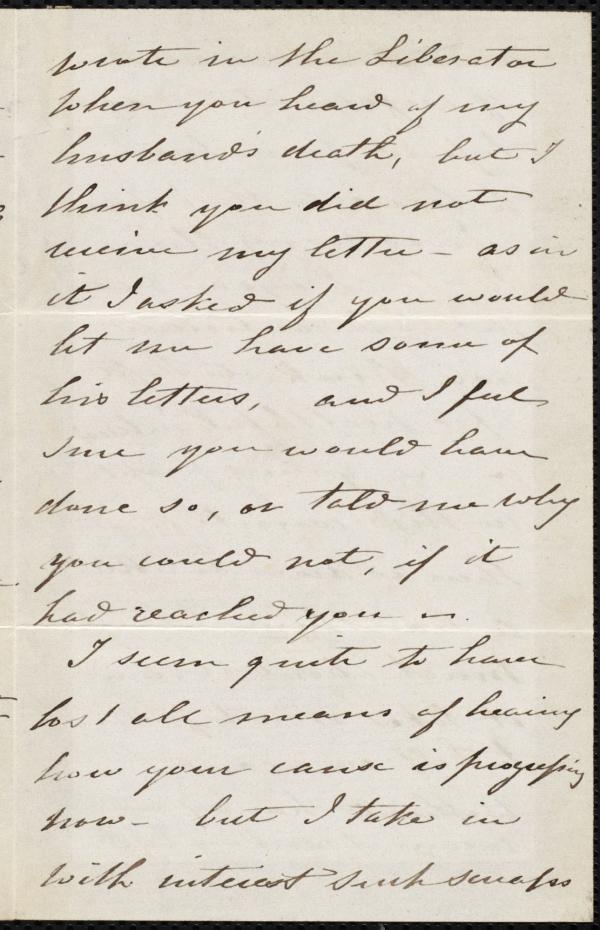 wrote in the Liberator
when you heard of my
husband's death, but I
think you did not
receive my letter - as in
it I asked if you would
let me have some of
his letters, and I feel
sure you would have
done so, or told me why
you could not, if it
had reached you -
I seem quite to have
lost all means of hearing
how your cause is progressing
now - but I take in
with interest such scraps